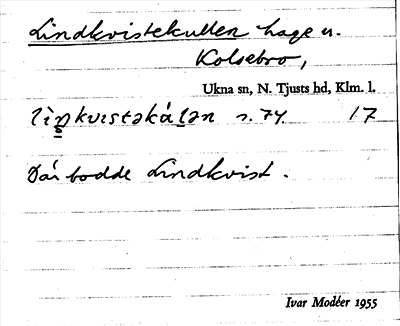 Lindkvistekullen hage u.
Kolsebro,
Ukna sn, N. Tjusts hd, Klm. l.
s. 74. 17
Där bodde Lindkvist.
Ivar Modéer 1955